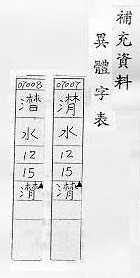 補充資料
異體字表
07007
潸
水
12
15
潸
07008
水
12
15
潸